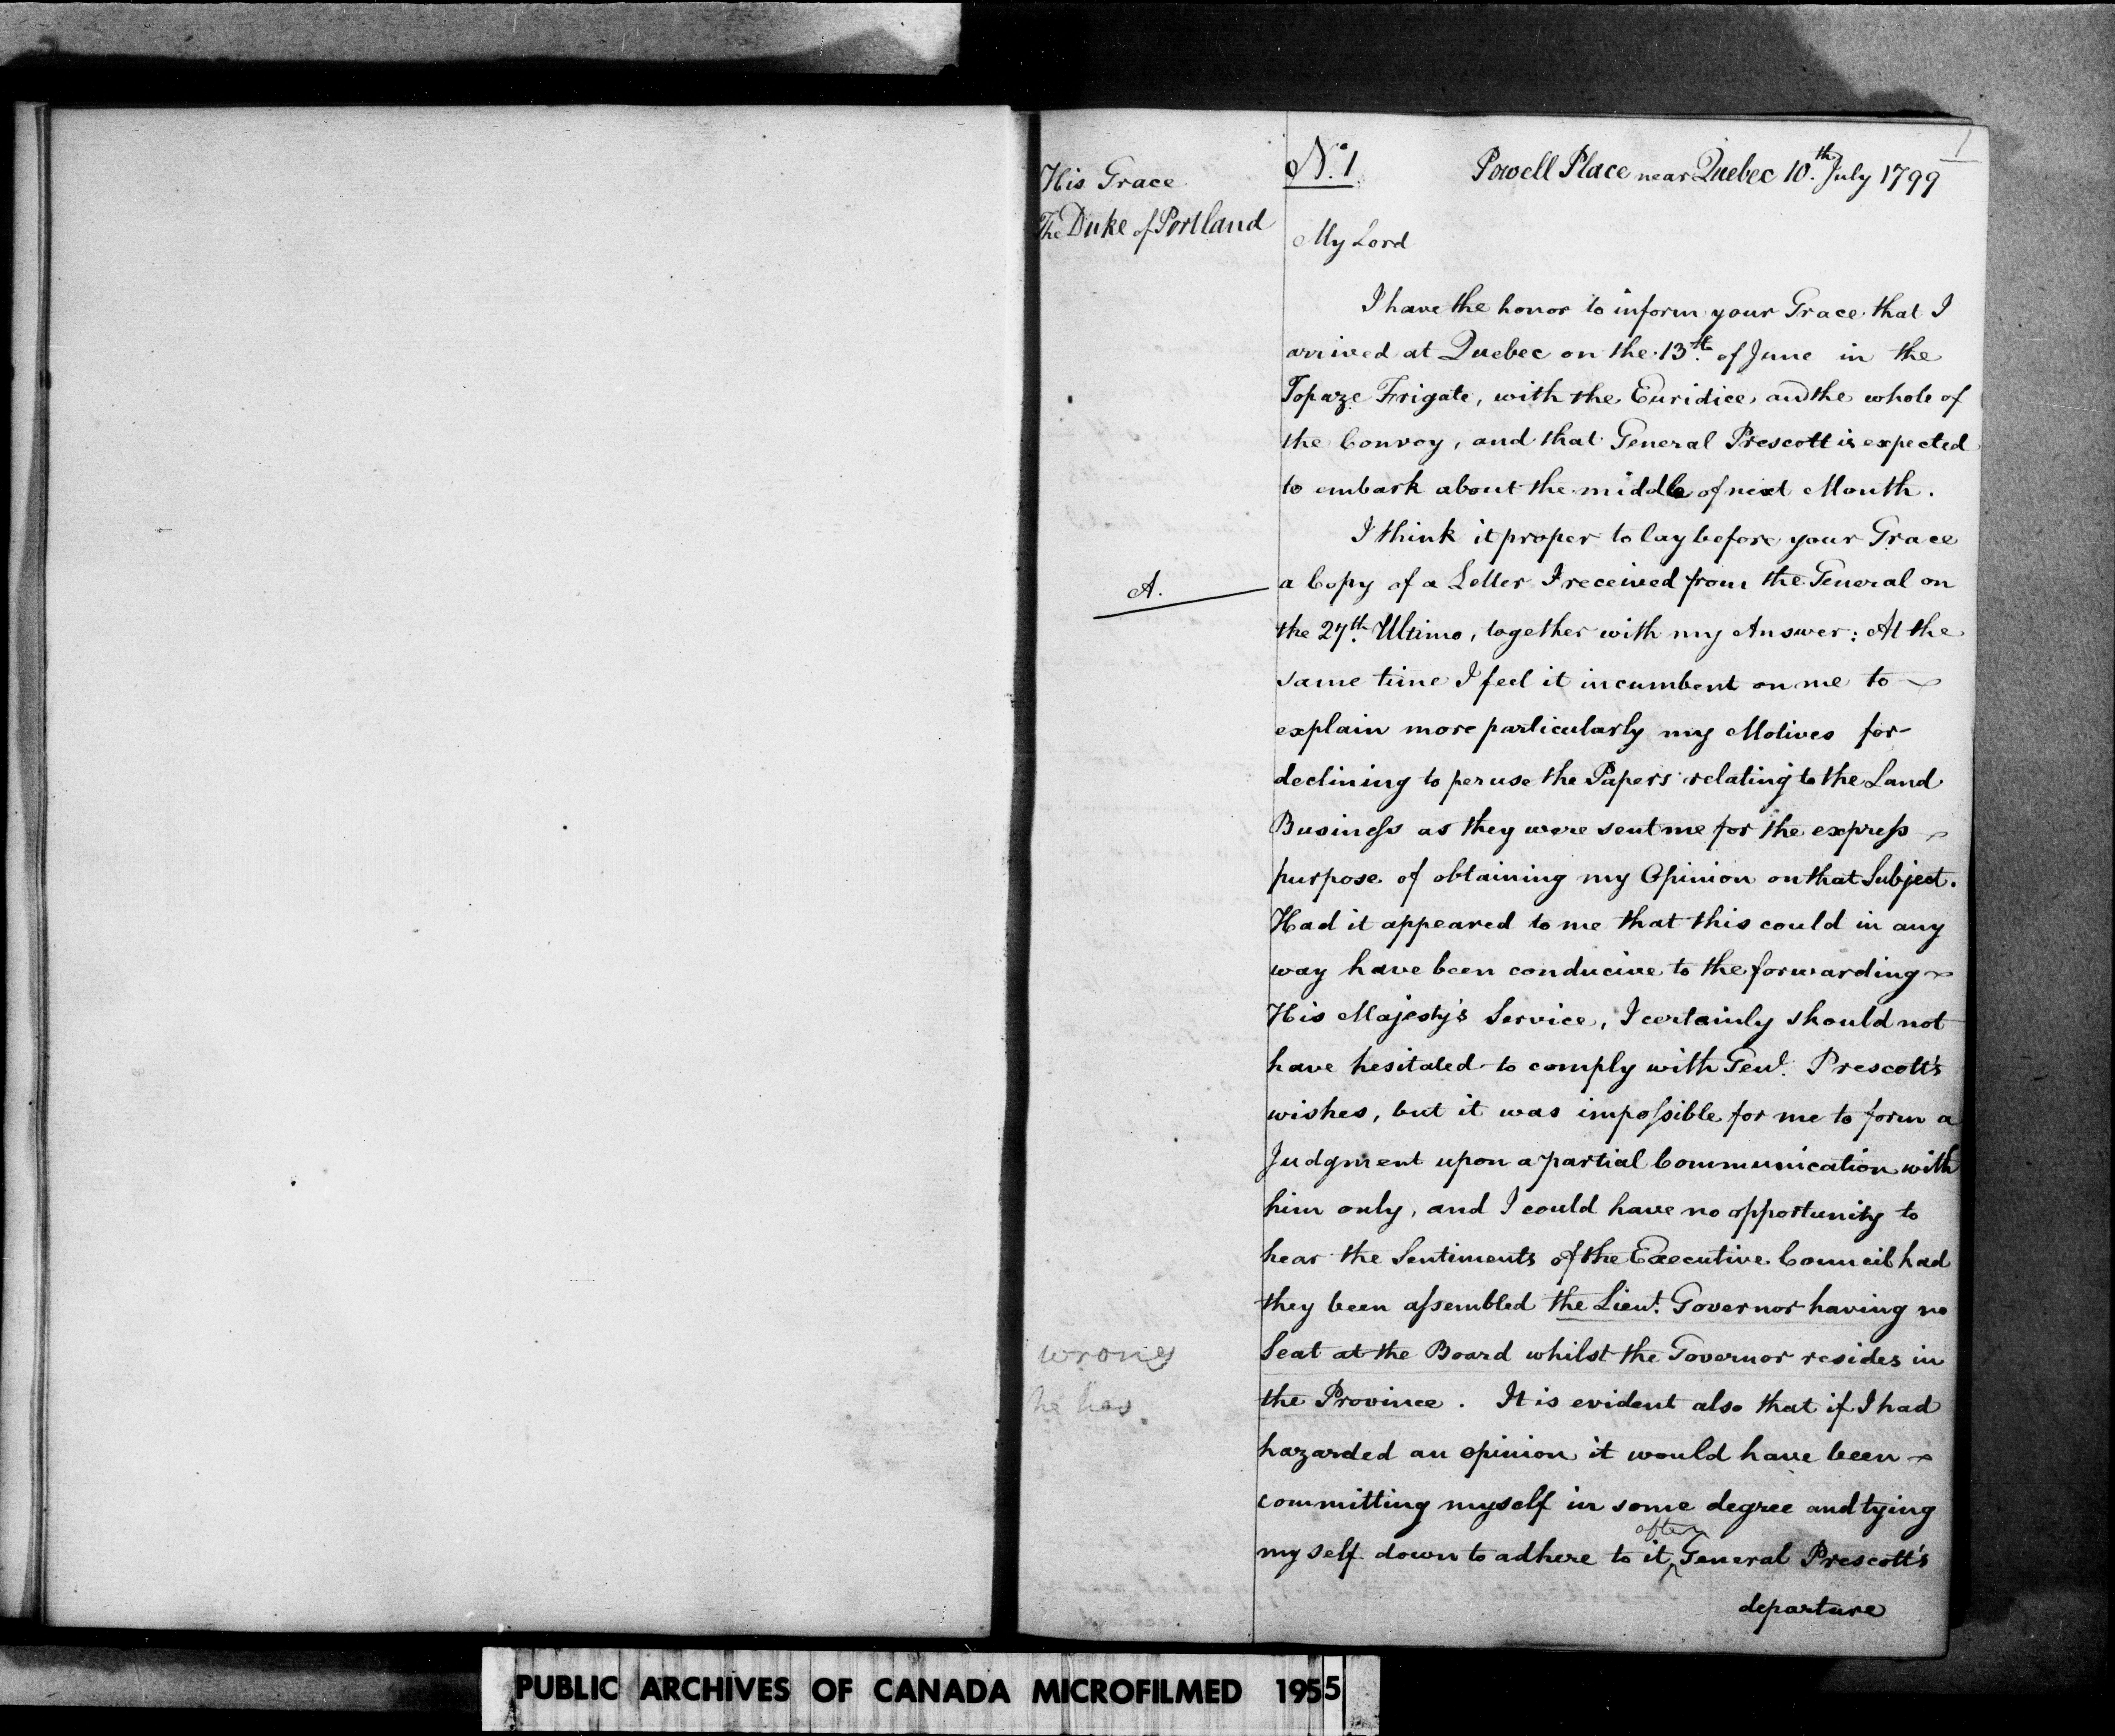 1
His Grace
The Duke of Portland
No. 1
Powell Place near Quebec 10.th July 1799
My Lord
I have the honor to inform your Grace that I
arrived at Quebec on the 13.th of June in the
Topaze Frigate, with the Euridice, and the whole of
the Convoy, and that General Prescott is expected
to embark about the middle of next Month.
I think it proper to lay before your Grace
A.
a Copy of a Letter I received from the General on
the 27.th Ultimo, together with my Answer: At the
same time I feel it incumbent on me to
explain more particularly my Motives for
declining to peruse the Papers relating to the Land
Busineſs as they were sent me for the expreſs
purpose of obtaining my Opinion on that Subject.
Had it appeared to me that this could in any
way have been conducive to the forwarding
His Majesty's Service, I certainly should not
have hesitated to comply with Genl. Prescott's
wishes, but it was impoſsible for me to form a
Judgment upon a partial Communication with
him only, and I could have no opportunity to
hear the Sentiments of the Executive Council had
they been aſsembled the Lieut. Governor having no
wrong
Seat at the Board whilst the Governor resides in
he has.
the Province. It is evident also that if I had
hazarded an opinion it would have been
committing myself in some degree and tying
after
my self down to adhere to it ‸ General Prescott's
departure
PUBLIC ARCHIVES OF CANADA MICROFILMED 1955